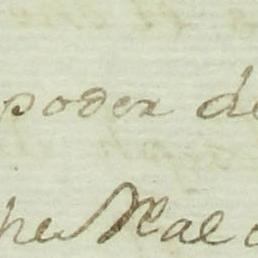 poder de
Real